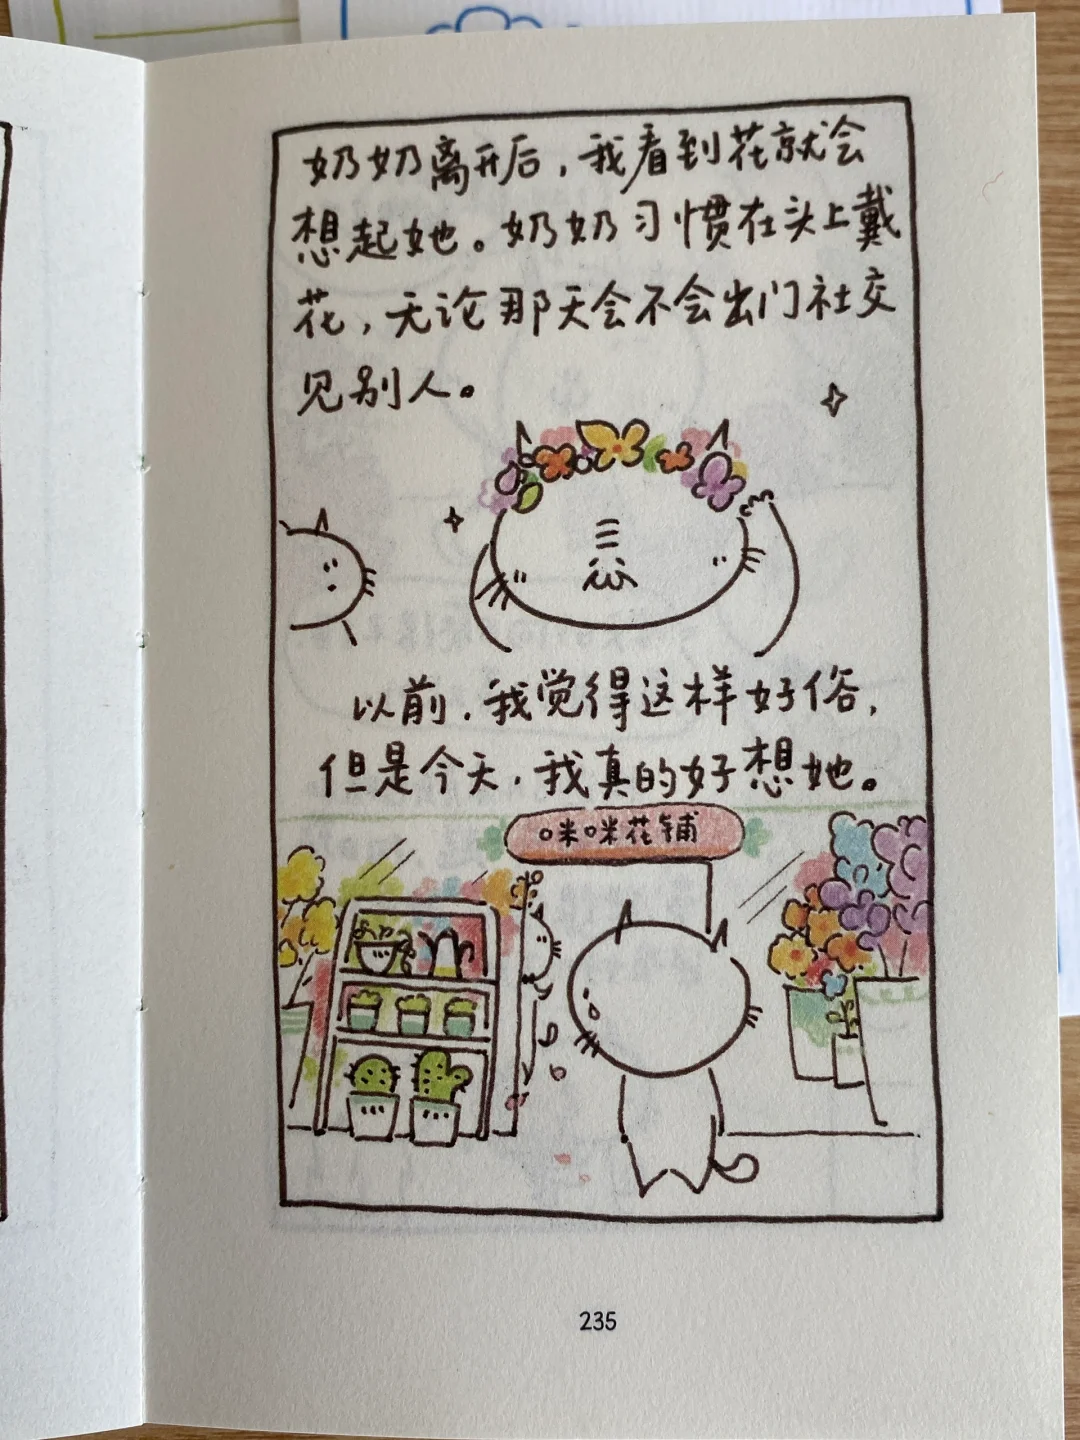 奶奶离开后，我看到花就会
想起她。奶奶习惯在头上戴
花，无论那天会不会出门社交
见别人。
以前，我觉得这样好俗，
但是今天，我真的好想她。
咪咪花铺
235